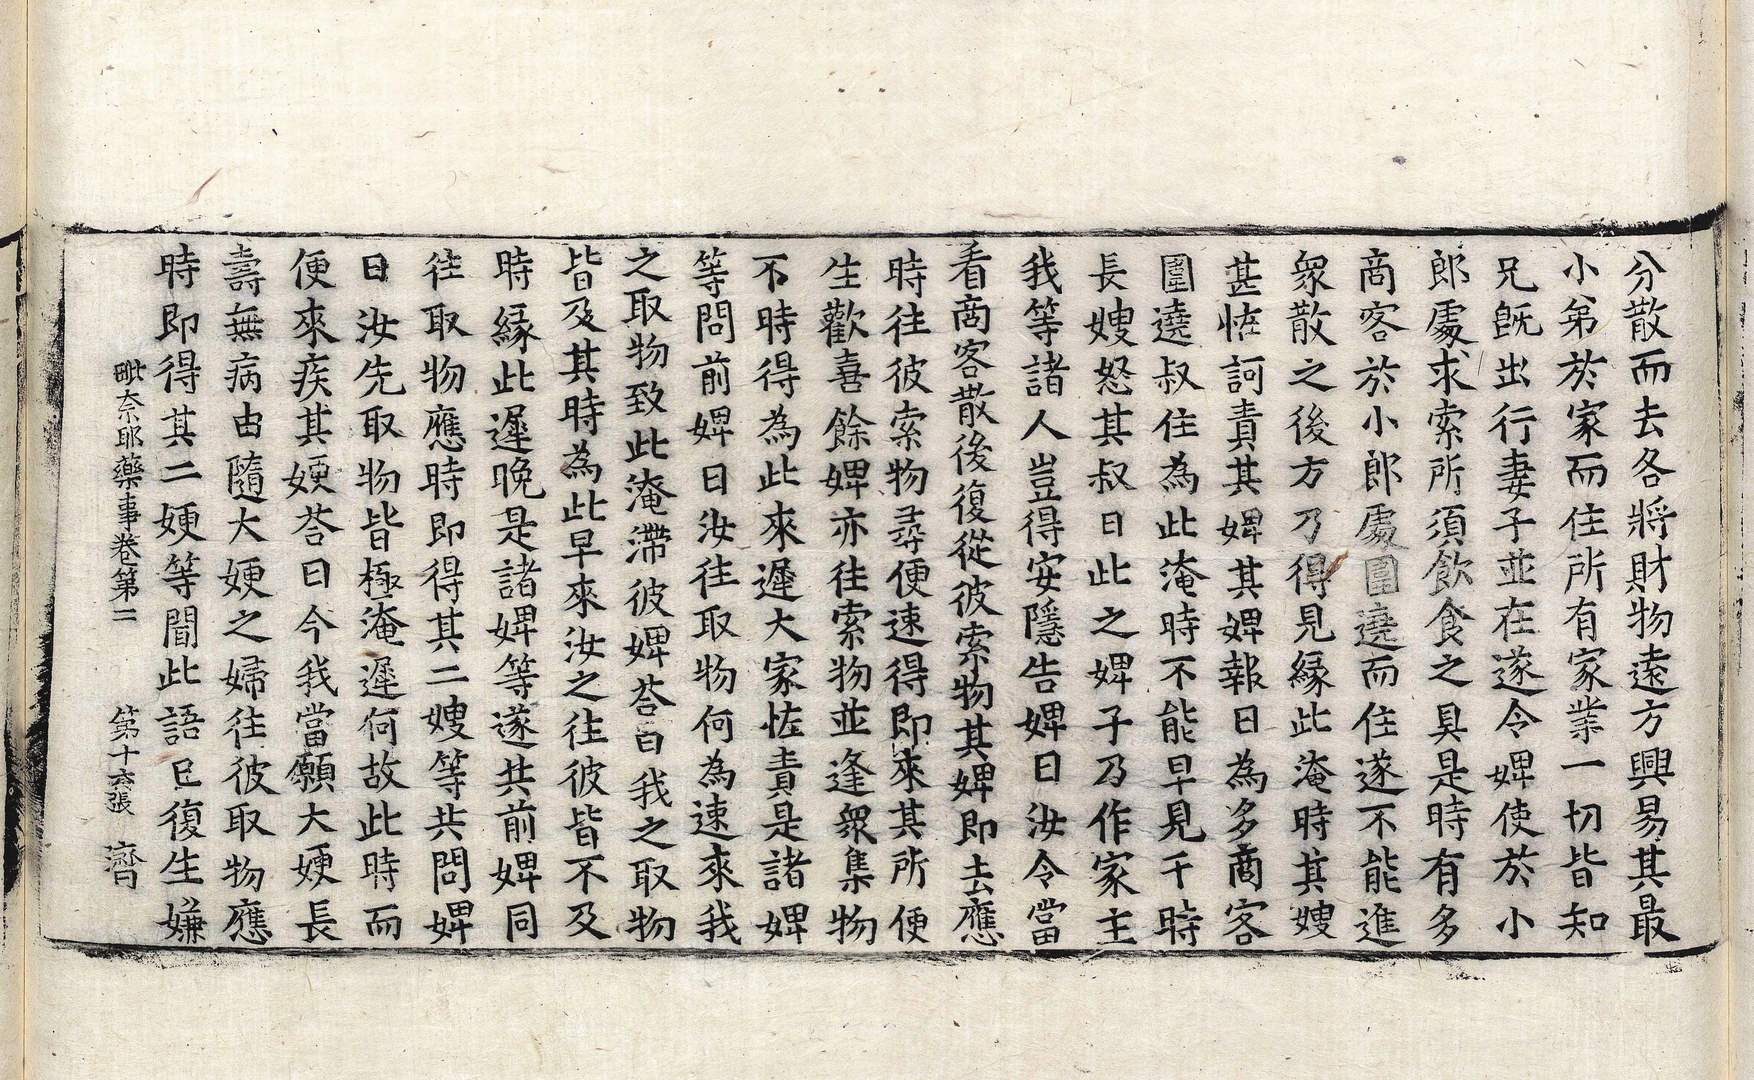 分散而去各將財物遠方興易其最
小弟於家而住所有家業一切皆知
兄旣出行妻子並在遂令婢使於小
郎處求索所須飮食之具是時有多
商客於小郎處圍遶而住遂不能進
衆散之後方乃得見縁此淹時其嫂
甚恠訶責其婢其婢報曰為多商客
圍遶叔住為此淹時不能早見于時
長嫂怒其叔曰此之婢子乃作家主
我等諸人豈得安隱告婢曰汝令當
看商客散後復從彼索物其婢即去應
時往彼索物尋便速得即來其所便
生歡喜餘婢亦往索物並逢衆集物
不時得為此來遲大家恠責是諸婢
等問前婢曰汝往取物何為速來我
之取物致此淹滯彼婢荅曰我之取物
皆及其時為此早來汝之往彼皆不及
時緣此遲晚是諸婢等遂共前婢同
往取物應時即得其二嫂等共問婢
曰汝先取物皆極淹遲何故此時而
便來疾其㛐荅曰今我當願大㛐長
壽無病由隨大㛐之婦往彼取物應
時即得其二㛐等聞此語已復生嫌
毗奈耶藥事卷第二 第十六張 濟